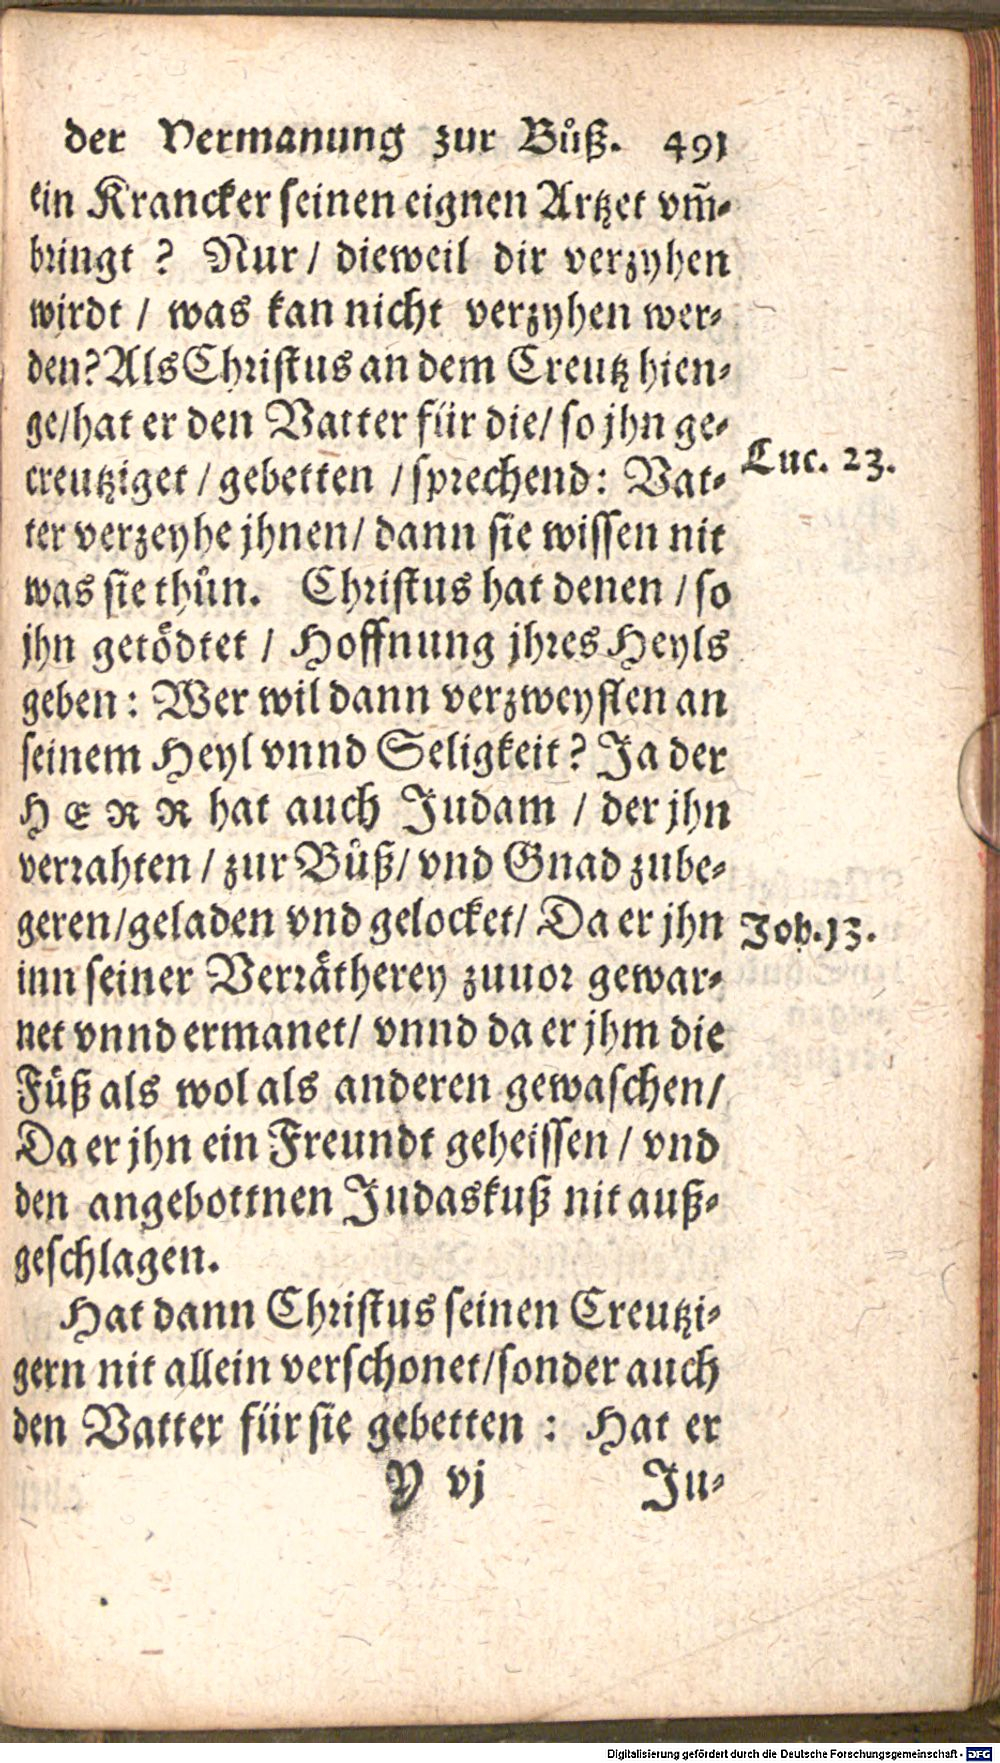 der Vermanung zur Bůß. 491
ein Krancker seinen eignen Artzet vm̃-
bringt ? Nur / dieweil dir verzyhen
wirdt / was kan nicht verzyhen wer-
den? Als Christus an dem Creutz hien-
ge/hat er den Vatter für die/ so jhn ge-
creutziget / gebetten / sprechend: Vat-
Luc. 23.
ter verzeyhe jhnen/ dann sie wissen nit
was sie thůn. Christus hat denen / so
jhn getödtet / Hoffnung jhres Heyls
geben : Wer wil dann verzweyflen an
seinem Heyl vnnd Seligkeit? Ja der
HERR hat auch Judam / der jhn
verrahten / zur Bůß/ vnd Gnad zube-
geren/geladen vnd gelocket/ Da er jhn
Joh. 13.
inn seiner Verrätherey zuuor gewar-
net vnnd ermanet/ vnnd da er jhm die
Füß als wol als anderen gewaschen/
Da er jhn ein Freundt geheissen / vnd
den angebottnen Judaskuß nit auß-
geschlagen.
Hat dann Christus seinen Creutzi-
gern nit allein verschonet/sonder auch
den Vatter für sie gebetten : Hat er
Y vj Ju-
Digitalisierung gefördert durch die Deutsche Forschungsgemeinschaft - DFG